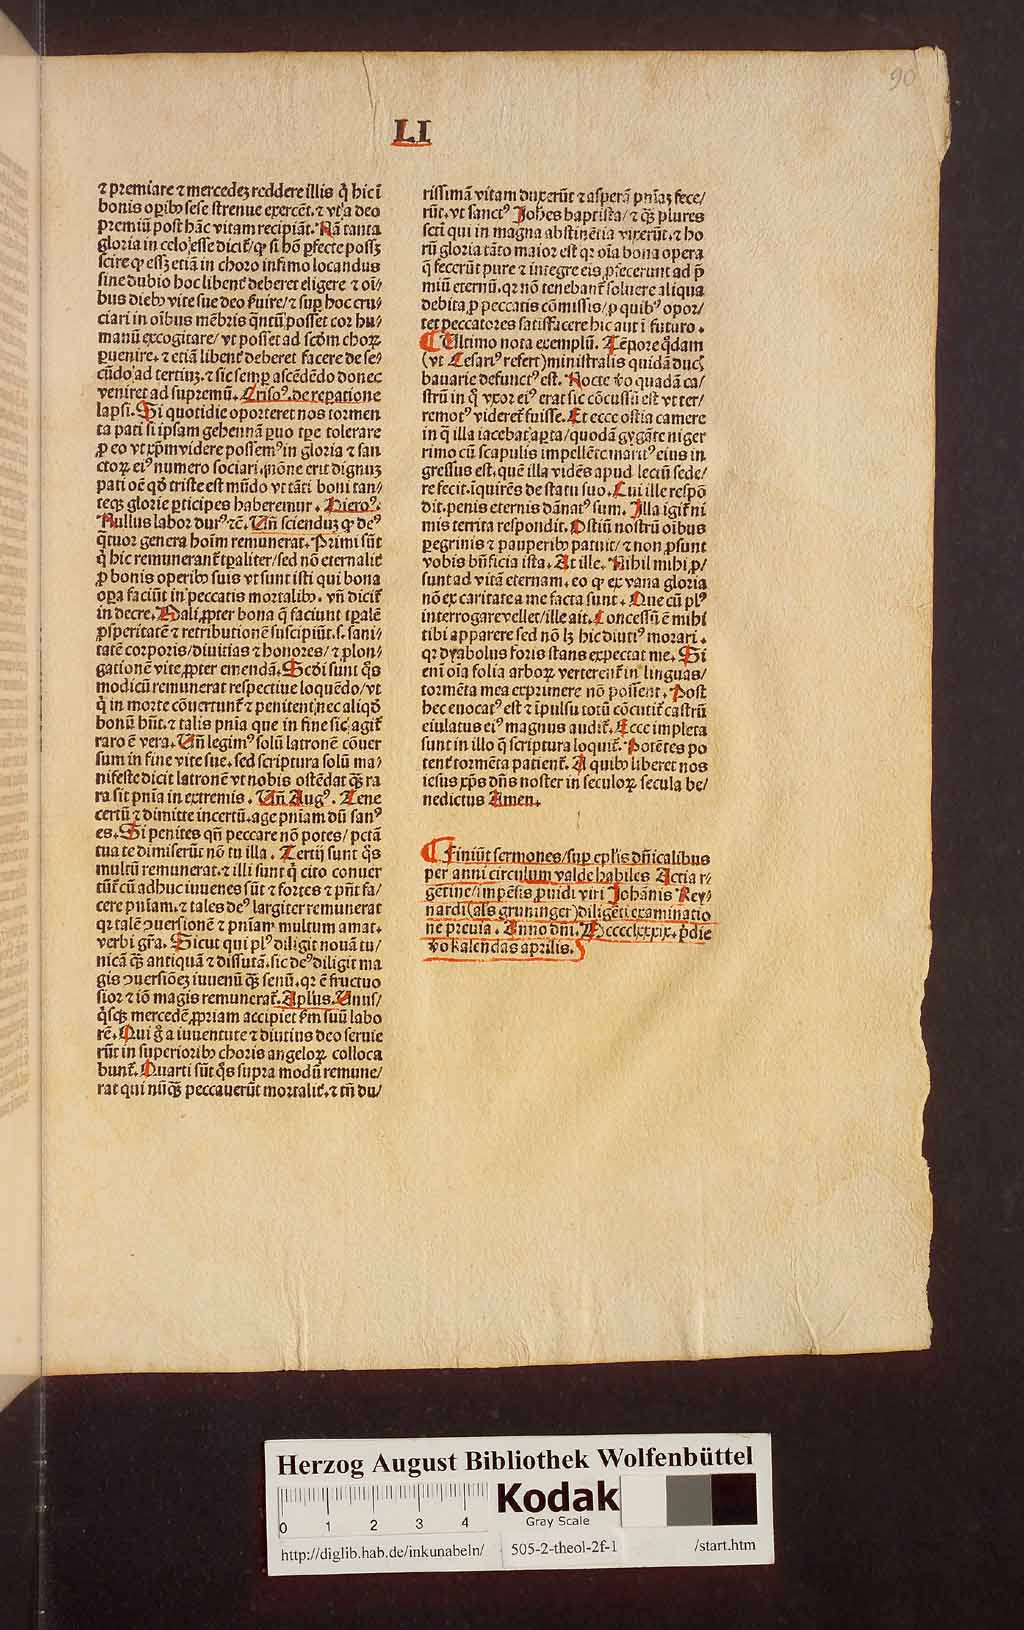 90
LI
⁊ premiare ⁊ mercedeꝫ reddere illis q̇ hic ī
bonis oꝑibꝰ sese strenue exercēt. ⁊ vt a deo
premiū post hāc vitam recipiāt. Nā tanta
gloria in celo esse dicit᷑/ ꝙ si hō ꝑfecte possꝫ
scire ꝙ essꝫ etiā in choro infimo locandus
sine dubio hoc libent᷑ deberet eligere ⁊ oī/
bus diebꝰ vite sue deo ẜuire/ ⁊ suꝑ hoc cru/
ciari in oībus mēbris q̄ntū posset cor hu/
manū excogitare/ vt posset ad scōm choꝝ
ꝑuenire. ⁊ etiā libent᷑ deberet facere de se/
cūdo ad tertiuꝫ. ⁊ sic semꝑ ascēdēdo donec
veniret ad supremū. Crisoꝰ. de reꝑatione
lapsi. Si quotidie oporteret nos tormen
ta pati si ipsam gehennā ꝑuo tꝑe tolerare
ꝓ eo vt xp̄m videre possemꝰ in gloria ⁊ san
ctoꝝ eiꝰ numero sociari. nōne erit dignuꝫ
pati oē qd̄ triste est mūdo vt tāti boni tan/
teqꝫ glorie ꝑticipes haberemur. Hieroꝰ.
Nullus labor durꝰ ⁊c̄. Vn̄ sciendūꝫ ꝙ deꝰ
q̄tuor genera hoīm remunerat. Primi sūt
q̇ hic remunerant᷑ tꝑaliter/ sed nō eternalit᷑
ꝓ bonis operibꝰ suis vt sunt isti qui bona
oꝑa faciūt in peccatis mortalibꝰ. vn̄ dicit᷑
in decre. Mali ꝓpter bona q̄ faciunt tꝑalē
ꝓsperitatē ⁊ retributionē suscipiūt. s. sani/
tatē corporis/ diuitias ⁊ honores/ ⁊ ꝓlon/
gationē vite ꝓpter emendā. Scd̄i sunt q̄s
modicū remunerat respectiue loquēdo/ vt
q̇ in morte cōuertunt᷑ ⁊ penitent nec aliqd̄
bonū hn̄t. ⁊ talis pn̄ia que in fine sic agit᷑
raro ē vera. Vn̄ legimꝰ solū latronē cōuer
sum in fine vite sue. sed scriptura solū ma/
nifeste dicit latronē vt nobis ostēdat qꝫ ra
ra sit pn̄ia in extremis. Vn̄ Augꝰ. Tene
certū ⁊ dimitte incertū. age pn̄iam dū sanꝰ
es. Si penites qn̄ peccare nō potes/ pctā
tua te dimiserūt nō tu illa. Tertij sunt q̄s
multū remunerat. ⁊ illi sunt q̇ cito conuer
tūt᷑ cū adhuc iuuenes sūt ⁊ fortes ⁊ pn̄t fa/
cere pn̄iam. ⁊ tales deꝰ largiter remunerat
qꝛ talē ꝯuersionē ⁊ pn̄iam multum amat.
verbi gr̄a. Sicut qui plꝰ diligit nouā tu/
nicā qꝫ antiquā ⁊ dissutā. sic deꝰ diligit ma
gis ꝯuersiōeꝫ iuuenū qꝫ senū. qꝛ ē fructuo
sior ⁊ iō magis remunerat᷑. Aplus. Vnus/
q̇sqꝫ mercedē ꝓpriam accipiet ẜm suū labo
rē. Qui g̊ a iuuentute ⁊ diutius deo seruie
rūt in superioribꝰ choris angeloꝝ colloca
bunt᷑. Quarti sūt q̄s supra modū remune/
rat qui nūqꝫ peccauerūt mortalit᷑. ⁊ tn̄ du/
rissimā vitam duxerūt ⁊ asperā pn̄iaꝫ fece/
rūt. vt sanctꝰ Johēs baptista/ ⁊ qꝫ plures
scti qui in magna abstinētia vixerūt. ⁊ ho
rū gloria tāto maior est qꝛ oīa bona opera
q̄ fecerūt pure ⁊ integre eis ꝓfecerunt ad p̄
miū eternū. qꝛ nō tenebant᷑ soluere aliqua
debita ꝓ peccatis cōmissis/ ꝓ quibꝰ opor/
tet peccatores satisfacere hic aut ī futuro.
Ultimo nota exemplū. Tēpore q̇dam
(vt Cesariꝰ refert) ministralis quidā ducꝭ
bauarie defunctꝰ est. Nocte ꝟo quadā ca/
strū in q̊ vxor eiꝰ erat sic cōcussū est vt ter/
remotꝰ videret᷑ fuisse. Et ecce ostia camere
in q̊ illa iacebat aꝑta/ quodā gygāte niger
rimo cū scapulis impellēte maritꝰ eius in
gressus est. quē illa vidēs apud lectū sede/
re fecit. iquirēs de statu suo. Cui ille respō
dit. penis eternis dānatꝰ sum. Illa igit᷑ ni
mis territa respondit. Ostiū nostrū oībus
ꝑegrinis ⁊ pauperibꝰ patuit/ ⁊ non ꝓsunt
vobis bn̄ficia ista. At ille. Nihil mihi ꝓ/
sunt ad vitā eternam. eo ꝙ ex vana gloria
nō ex caritate a me facta sunt. Que cū plꝰ
interrogare vellet/ ille ait. Concessū ē mihi
tibi apparere sed nō lꝫ hic diutiꝰ morari.
qꝛ dyabolus foris stans expectat me. Si
eni oīa folia arboꝝ verterent᷑ in linguas/
tormēta mea exprimere nō possent. Post
hec euocatꝰ est ⁊ īpulsu totū cōcutit᷑ castrū
eiulatus eiꝰ magnus audit᷑. Ecce impleta
sunt in illo q̄ scriptura loquit᷑. Potētes po
tent᷑ tormēta patient᷑. A quibꝰ liberet nos
iesus xp̄s dn̄s noster in seculoꝝ secula be/
nedictus Amen.
Finiūt sermones/ suꝑ epl̄is dn̄icalibus
per anni circulum valde habiles Actia r/
gētine/ impēsis ꝓuidi viri Johānis Rey/
nardi (al̄s gruninger) diligēti examinatio
ne preuia. Anno dn̄i. Mcccclxxxix. p̄die
ꝟo kalendas aprilis.
Herzog August Bibliothek Wolfenbüttel
0 1 2 3 4
Kodak
Gray Scale
http://diglib.hab.de/inkunabeln/ 505-2-theol-2f-1 /start.htm